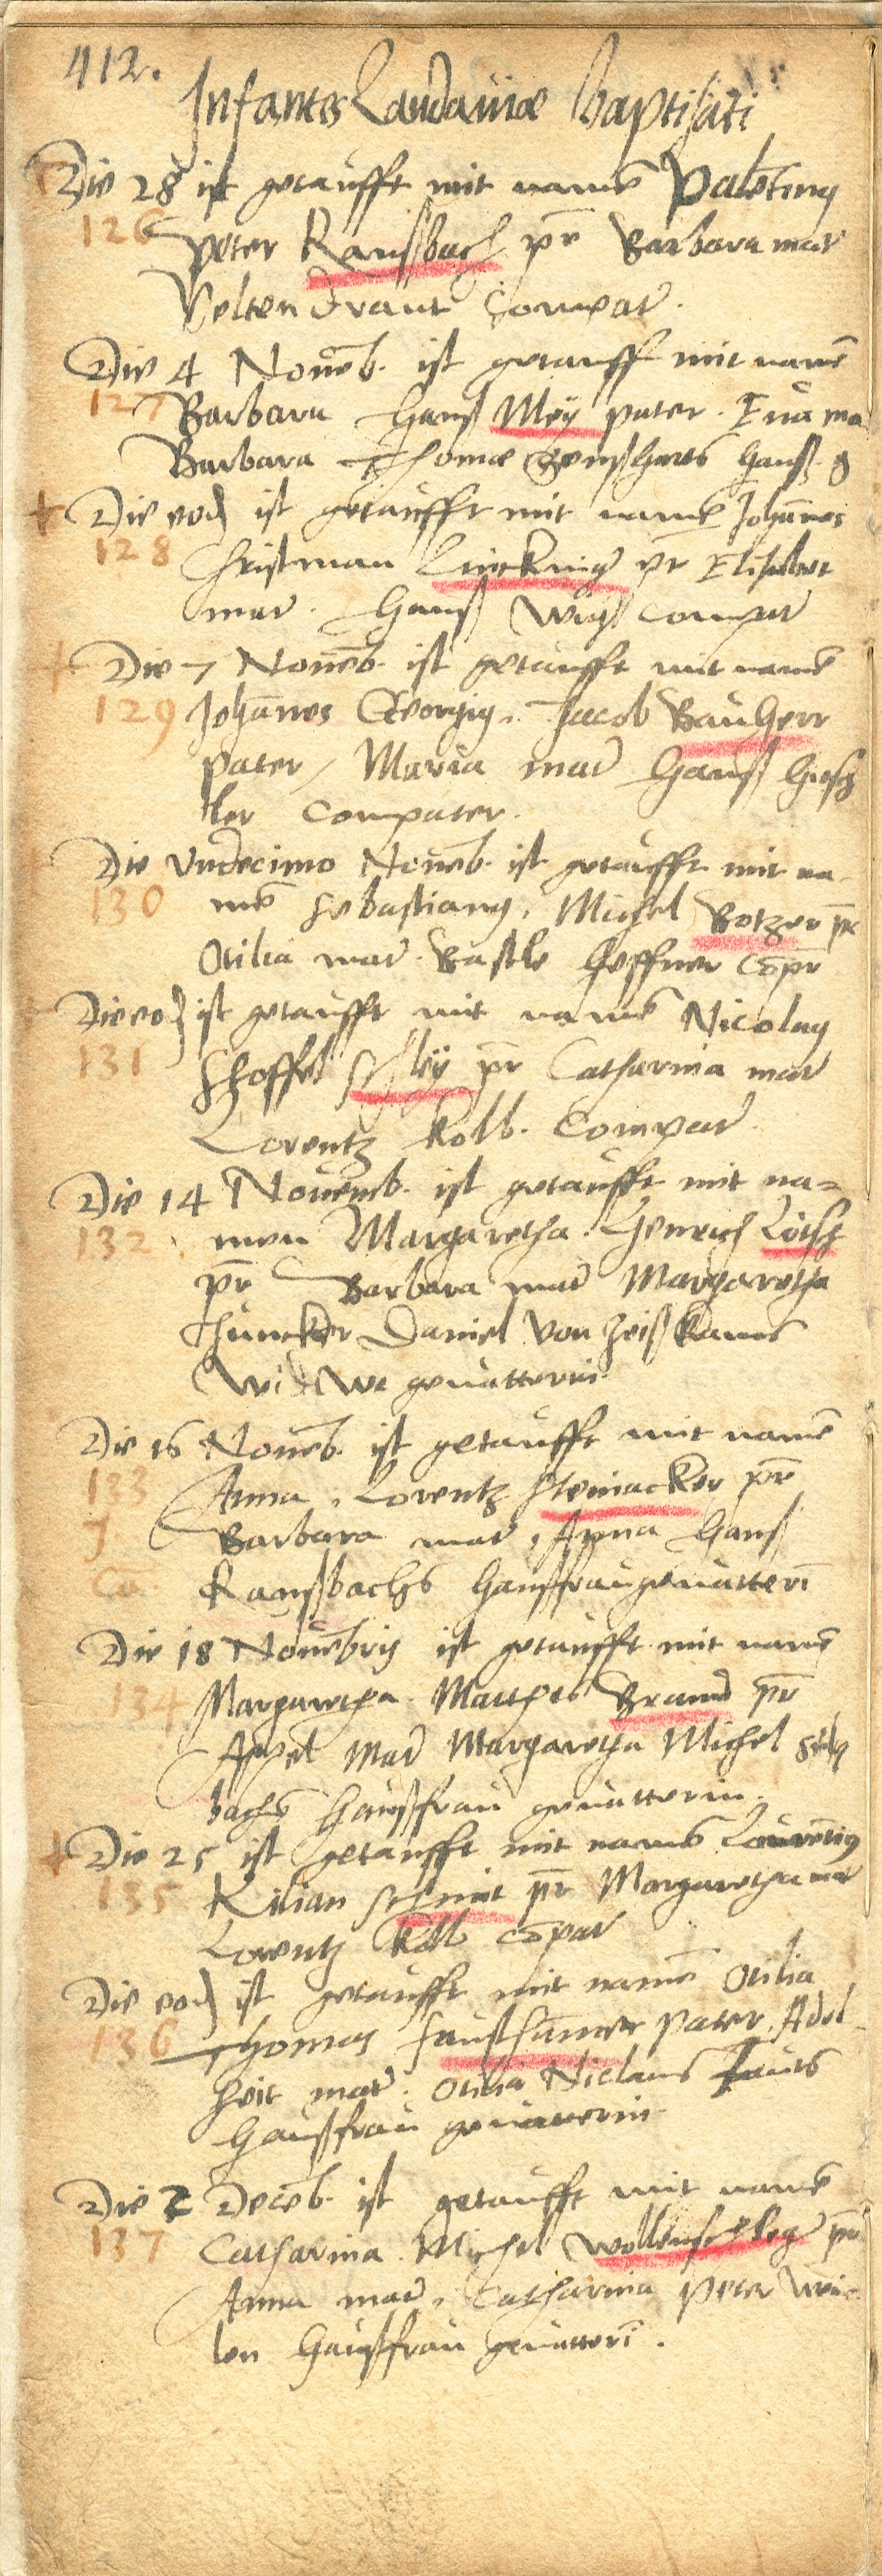 412.
Infantes Landaviae baptisati
Die 28 ist getaufft mit namē Valētinus
126
Peter Ransbach pr̄ Barbara mar
Velten Draut Compar.
Die 4 Novēb. ist getauff mit namē
127
Barbara Hanß Meÿ pater. Eua ma
Barbara Thomae Hanß g
+ Die eod ist getaufft mit namē Johānes
128
Christman pr Elisabet
mar. Hanß compar
+ Die 7 Novēb. ist getaufft mit namē
129
Johānes Georgius. Jacob Bauherr
pater / Maria mar Hanß
ler Compater.
Die Vndecimo Novēb. ist getaufft mit na-
130
mē Sebastianus. Michel Botzer pr̄
Otilia mar. Bastle Heffner cōpr
Die eod ist getaufft mit namē Nicolaus
131
Stoffel Schleÿ pr̄ Catharina mar
Lorentz Kolb. Compar
Die 14 Novemb. ist getaufft mit na=
132
men Margaretha. Henrich Lötsch
pr̄ Barbara mar Margaretha
Juncker Daniel von Zeißkams
Widwe gevatterin.
Die 16 Novēb. ist getaufft mit namē
133
Anna, Lorentz Steinacker pr̄
J
Barbara mar, Anna Hanß
Ca.
Ransbachs Haußfrau gevatterī
Die 18 Novēbris ist getaufft mit namē
134
Margaretha. Matthes Braund pr̄
Appel mar Margaretha Michel
bachs Haußfrau gevatterin.
+ Die 25 ist getaufft mit namē Laurētius
135
Kilian Schmit pr̄ Margaretha mar
Lorentz Kolb cōpar
Die eod ist getaufft mit namē Otilia
136
Thomas pater. Adel-
heit mar. Otilia Niclaus Fauts
Haußfrau gevatterin
Die 2 Decēb. ist getaufft mit namē
137
Catharina. Michel Wollenschleger pr̄
Anna mar, Catharina Peter Wei-
len Haußfrau gevatterī.